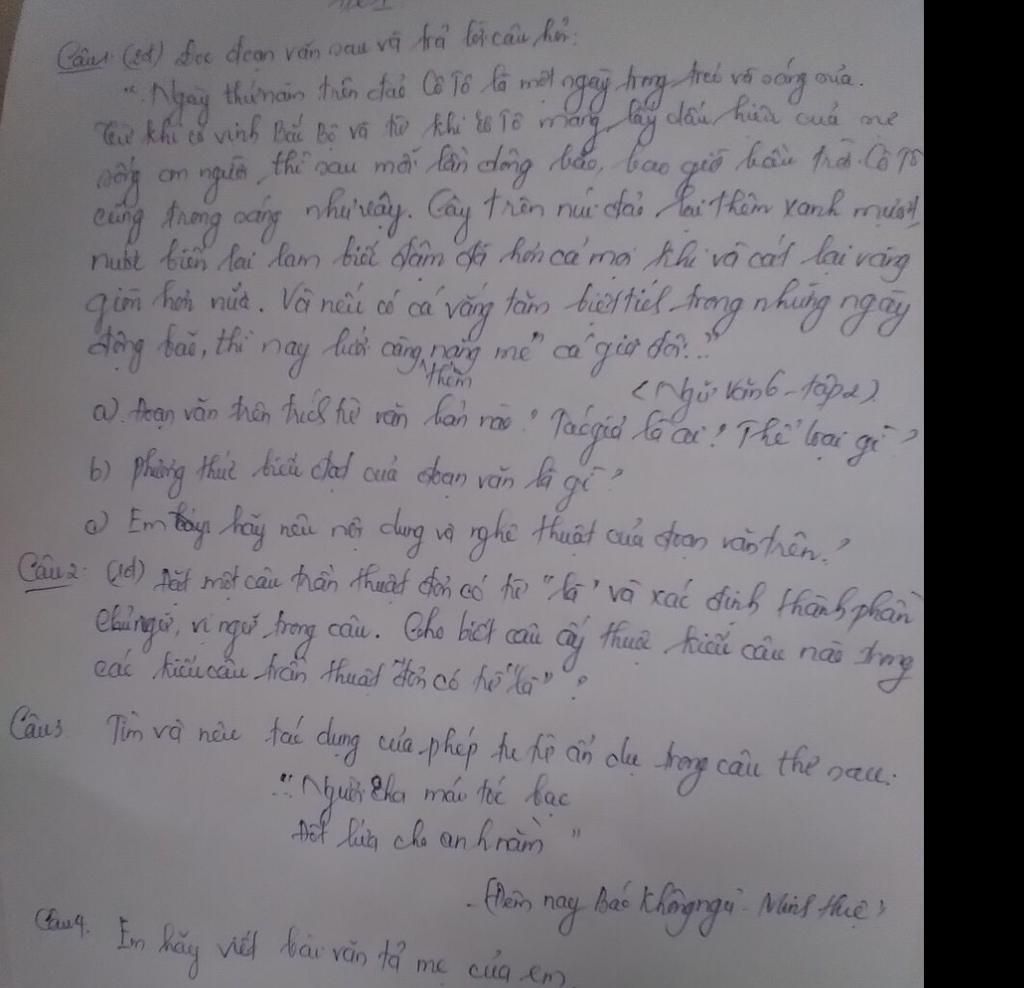 Câu1 (2đ) Đọc đoạn văn sau và trả lời câu hỏi:
"..Ngày thứ năm trên đảo Cô Tô là một ngày trong trẻo và sáng sủa.
Từ khi có vịnh Bắc Bộ và từ khi Cô Tô mang lấy dấu hiệu của
sống con người, thì sau mỗi lần dông bão, bao giờ bầu trời Cô Tô
cũng trong sáng như vậy. Cây trên núi đảo lại thêm xanh mượt,
nước biển lại lam biếc đậm đà hơn cả mọi khi và cát lại vàng
giòn hơn nữa. Và nếu có cá vắng tăm biệt tích trong những ngày
động bão, thì nay lưới càng thêm nặng mẻ cá giã đôi.."
(Ngữ văn 6 - tập 2)
a) Đoạn văn trên trích từ văn bản nào? Tác giả là ai? Thể loại gì?
b) Phương thức biểu đạt của đoạn văn là gì?
c) Em hãy nêu nội dung và nghệ thuật của đoạn văn trên.?
Câu 2: (1đ) Đặt một câu trần thuật đơn có từ "là" và xác định thành phần
chủ ngữ, vị ngữ trong câu. Cho biết câu ấy thuộc kiểu câu nào trong
các kiểu câu trần thuật đơn có từ "là"?
Câu3 Tìm và nêu tác dụng của phép tu từ ẩn dụ trong câu thơ sau:
".. Người Cha mái tóc bạc
Đốt lửa cho anh nằm"
- (Đêm nay Bác không ngủ - Minh Huệ)
Câu4. Em hãy viết bài văn tả mẹ của em